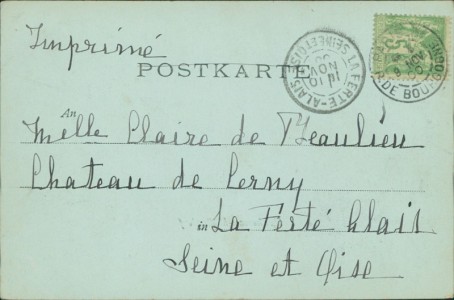 Imprimé
POSTKARTE
LA FERTE-ALAIS
SEINE ET OISE
10 NOV
R. DE BOUR
An
Melle Claire de Beaulieu
Chateau de Cerny
in La Ferté Alais
Seine et Oise